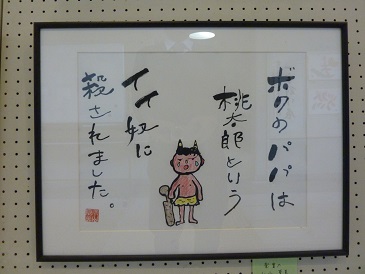 ボクのパパは
桃太郎という
イイ奴に
殺されました。